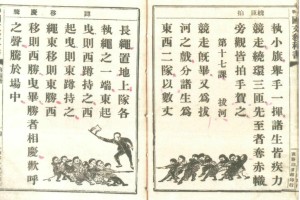 執小旗舉手一揮諸生皆疾力
競走繞環三匝先至者奪赤幟
旁觀皆拍手賀之
第十七課 拔河
競走旣畢又爲拔
河之戲分諸生爲
東西二隊以數丈
長繩置地上隊各
執繩之一端東起
曳則西蹲持之西
起曳則東蹲持之
繩東移則東勝西
移則西勝曳畢勝者相慶歡呼
之聲騰於場中